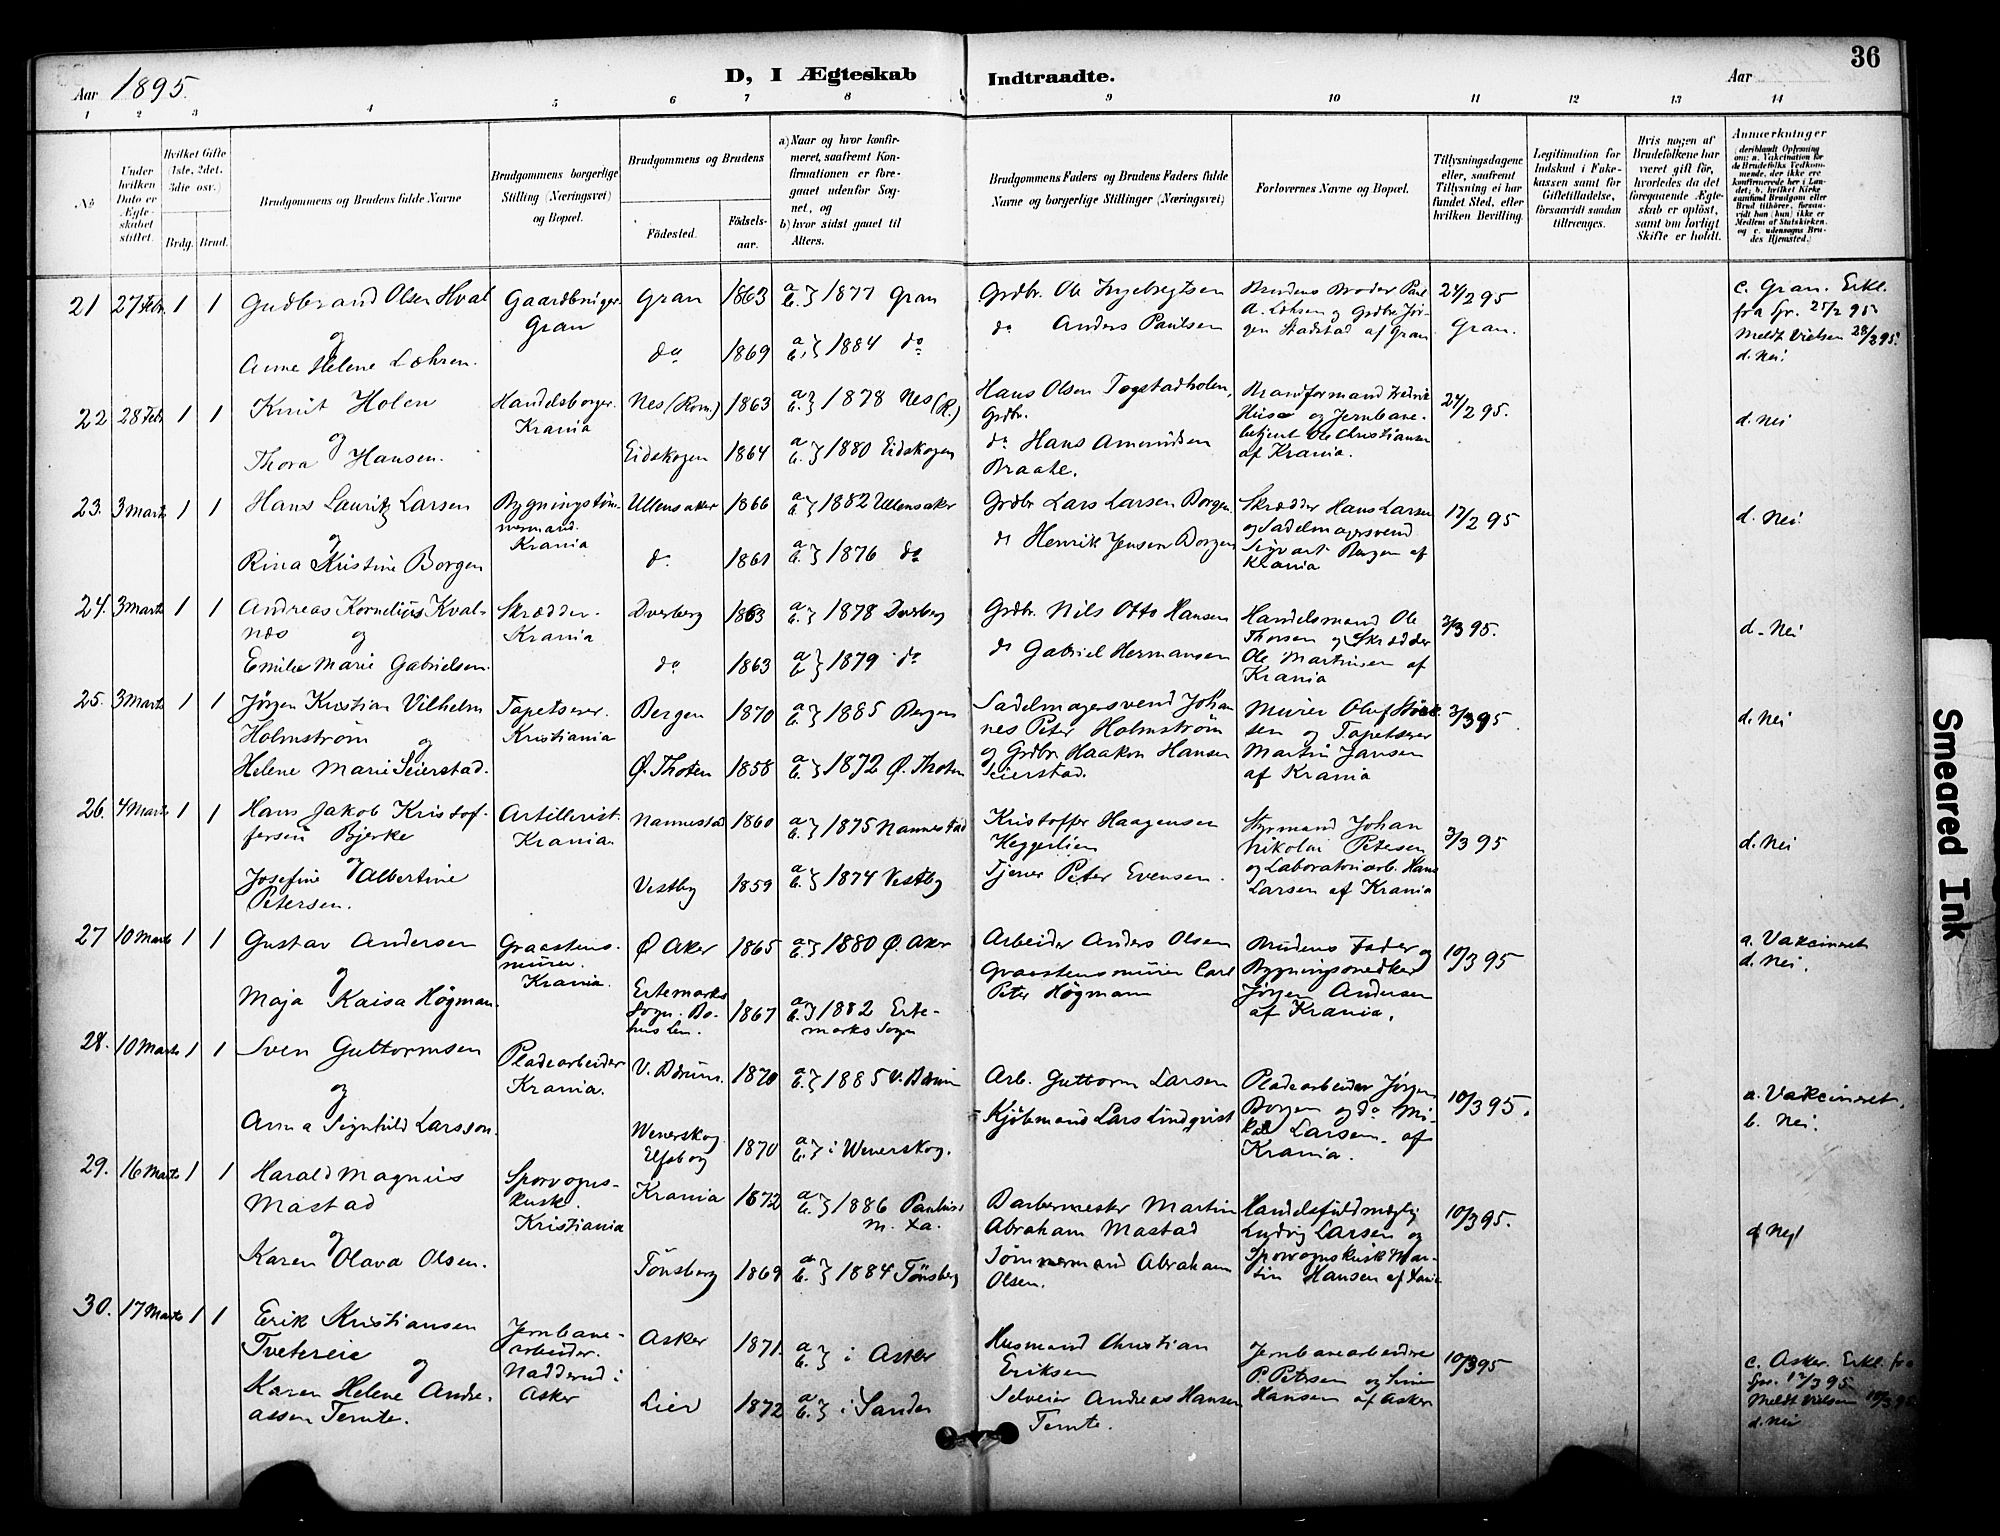 36
Aar 1895.
D, I Ægteskab Indtraadte.
Aar
1 2 3 4 5 6 7 8 9 10 11 12 13 14
No
Under hvilken Dato er Ægteskabet stiftet.
Hvilket Gifte (1ste, 2det, 3die osv.)
Brdg. Brud.
Brudgommens og Brudens fulde Navne
Brudgommens borgerlige Stilling (Næringsvei) og Bopæl.
Brudgommens og Brudens
Fødested.
Fødselsaar.
a) Naar og hvor konfirmeret, saafremt Konfirmationen er foregaaet udenfor Sognet, og
b) hvor sidst gaaet til Alters.
Brudgommens Faders og Brudens Faders fulde Navne og borgerlige Stillinger (Næringsvei)
Forlovernes Navne og Bopæl.
Tillysningsdagene eller, saafremt Tillysning ei har fundet Sted, efter hvilken Bevilling.
Legitimation for Indskud i Enkekassen samt for Giftetilladelse, forsaavidt saadan tiltrænges.
Hvis nogen af Brudefolkene har været gift før, hvorledes da det foregaaende Ægteskab er opløst, samt om lovligt Skifte er holdt.
Anmærkninger (deriblandt Oplysning om: a. Vakcination for de Brudefolks Vedkommende, der ikke ere konfirmerede her i Landet; b. hvilket Kirkesamfund Brudgom eller Brud tilhører, forsaavidt han (hun) ikke er Medlem af Statskirken, og c. udensogns Brudes Hjemsted.)
21 27 Febr. 1 1 Gudbrand Olsen Hval Gaardbruger Gran 1863 a. b. } 1877 Gran Grdbr. Ole Ingebregtsen Brudens Broder Paul 24/2 95 c. Gran. Erkl.
og Gran do Anders Paulsen A. Lohsen og Grdbr. Jør- Gran. fra Spr. 25/2 95
Anne Helene Lohren. do 1869 a. b. } 1884 do gen Stadstad af Gran Meldt Vielsen 28/2 95.
d. Nei
22 28 Febr 1 1 Knut Holen Handelsborger. Nes (Rom.) 1863 a. b. } 1878 Nes (R.) Hans Olsen Togstadholen, Brandformand Fredrik 24/2 95. d. Nei
og Krania Grdbr. Huse og Jernbane-
Thora Hansen. Eidskogen 1864 a. b. } 1880 Eidskogen do Hans Amundsen betjent Ole Christiansen
Braate. af Krania.
23. 3 Marts 1 1 Hans Lauritz Larsen Bygningstøm- Ullensaker 1866 a. b. } 1882 Ullensaker Grdbr Lars Larsen Borgen Skrædder Hans Larsen 17/2 95 d. Nei.
og mermand. og Sadelmagersvend
Rina Kristine Borgen Krania do 1861 a. b. } 1876 do do Henrik Jensen Borgen Sigvart Borgen af
Krania
24. 3 Marts 1 1 Andreas Kornelius Kval- Skrædder. Dverberg 1863 a. b. } 1878 Dverberg Grdbr. Nils Otto Hansen Handelsmand Ole 3/3 95. d. Nei
nes og Krania Thorsen og Skrædder
Emilie Marie Gabrielsen. do 1863 a. b. } 1879 do do Gabriel Hermansen Ole Martinsen af
Krania
25. 3 Marts 1 1 Jørgen Kristian Vilhelm Tapetserer. Bergen 1870 a. b. } 1885 Bergen Sadelmagersvend Johan Murer Oluf 3/3 95 d. Nei
Holmstrøm og Kristiania nes Peter Holmstrøm sen og Tapetserer
Helene Marie Seierstad. Ø. Thoten 1858 a. b. } 1872 Ø. Thoten og Grdbr. Haakon Hansen Martin Jansen
Seierstad. af Krania
26. 4 Marts 1 1 Hans Jakob Kristof- Artillerist. Nannestad 1860 a. b. } 1875 Nannestad Kristoffer Haagensen Styrmand Johan 3/3 95 d. Nei
fersen Bjerke Krania. Heggerlien Nikolai Petersen
og Josefine Albertine Vestby 1859 a. b. } 1874 Vestby Tjener Peter Evensen. og Laboratoriearb. Hans
Petersen. Larsen af Krania
27 10 Marts 1 1 Gustav Andersen Graastens- Ø Aker 1865 a. b. } 1880 Ø. Aker Arbeider Anders Olsen Brudens Fader og 10/3 95 a. Vakcineret
og murer. Graastensmurer Carl Bygningssnedker d. Nei.
Maja Kaisa Högman. Krania. Ertemarks Sogn. Bohus Len. 1867 a. b. } 1882 Erte- Peter Högmann Jørgen Andersen
marks Sogn af Krania.
28. 10 Marts 1 1 Sven Guttormsen Pladearbeider V. Bærum. 1870 a. b. } 1885 V. Bærum Arb. Guttorm Larsen Pladearbeider Jørgen 10/3 95. a. Vakcineret.
og Krania. Kjøbmand Lars Lindqvist Borgen og do Mi- b. Nei.
Anna Signhild Larsson. Wenerskog Elfsborg 1870 a. b. } i Wenerskog. kal Larsen. af
Krania.
29. 16 Marts 1 1 Harald Magnus Sporvogns- Krania 1872 a. b. } 1886 Paulus Barbermester Martin Handelsfuldmægtig 10/3 95. d Nei
Mastad kusk. m. Xa. Abraham Mastad Ludvig Larsen og
og Kristiania Sporvognskusk Mar-
Karen Olava Olsen. Tønsberg 1869 a. b. } 1884 Tønsberg Tømmermand Abraham tin Hansen af Xania
Olsen.
30. 17 Marts 1 1 Erik Kristiansen Jernbane- Asker 1871. a. b. } i Asker Husmand Christian Jernbanearbeidere 10/3 95 c. Asker. Erkl. fra
Tvetereie arbeider. Eriksen P. Petersen og Spr. 17/3 95
og Nadderud i
Karen Helene Andre- Asker Lier 1872 a. b. } i Sander Selveier Andreas Hansen Hansen af Asker Meldt Vielsen
assen Temte. Temte. d. Nei
Smeared Ink